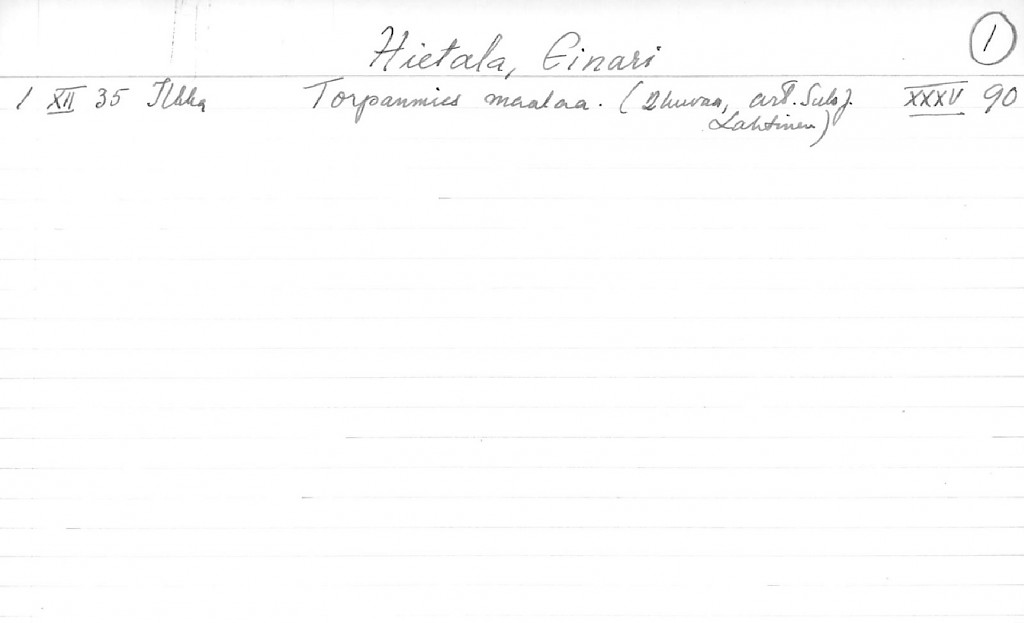 Hietala, Einari 1
1 XII 35 Ilkka Torpanmies maalaa. (2 kuvaa, art. Sulo J. XXXV 90
Lahtinen)